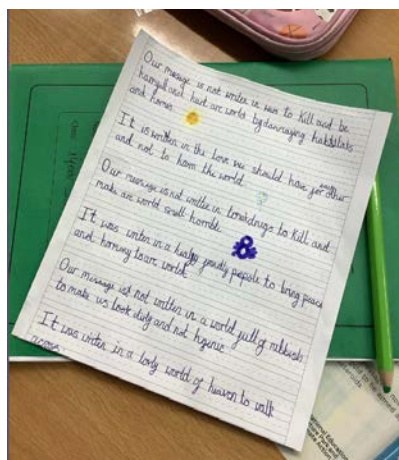 Our message is not writen in war to Kill and be
harmfull and hurt are world by damaging habitats
and homes
It is written in the love we should have for other
and not to harm the world
Our message is not written in drugs to Kill and
make are world smell horrible
&
It was writen in a kindly people to bring peace
and harmony to are world
Our message is not written in a world full of rubbish
to make us look dirty and not higenic
It was writen in a lovly world of heaven to walk
across.